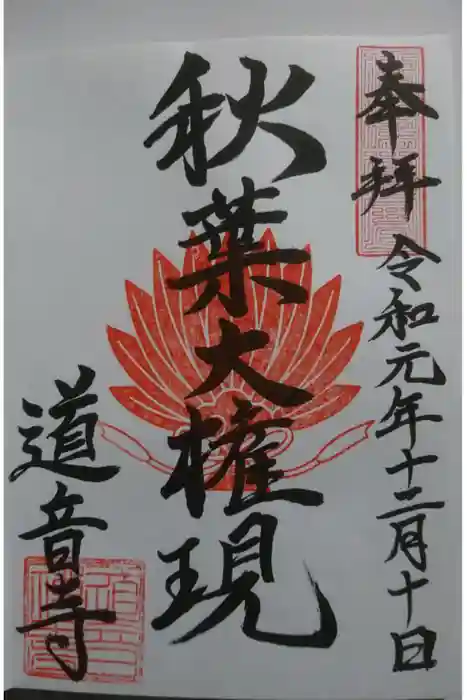 奉拝
令和元年十二月十日
秋葉大権現
道音寺